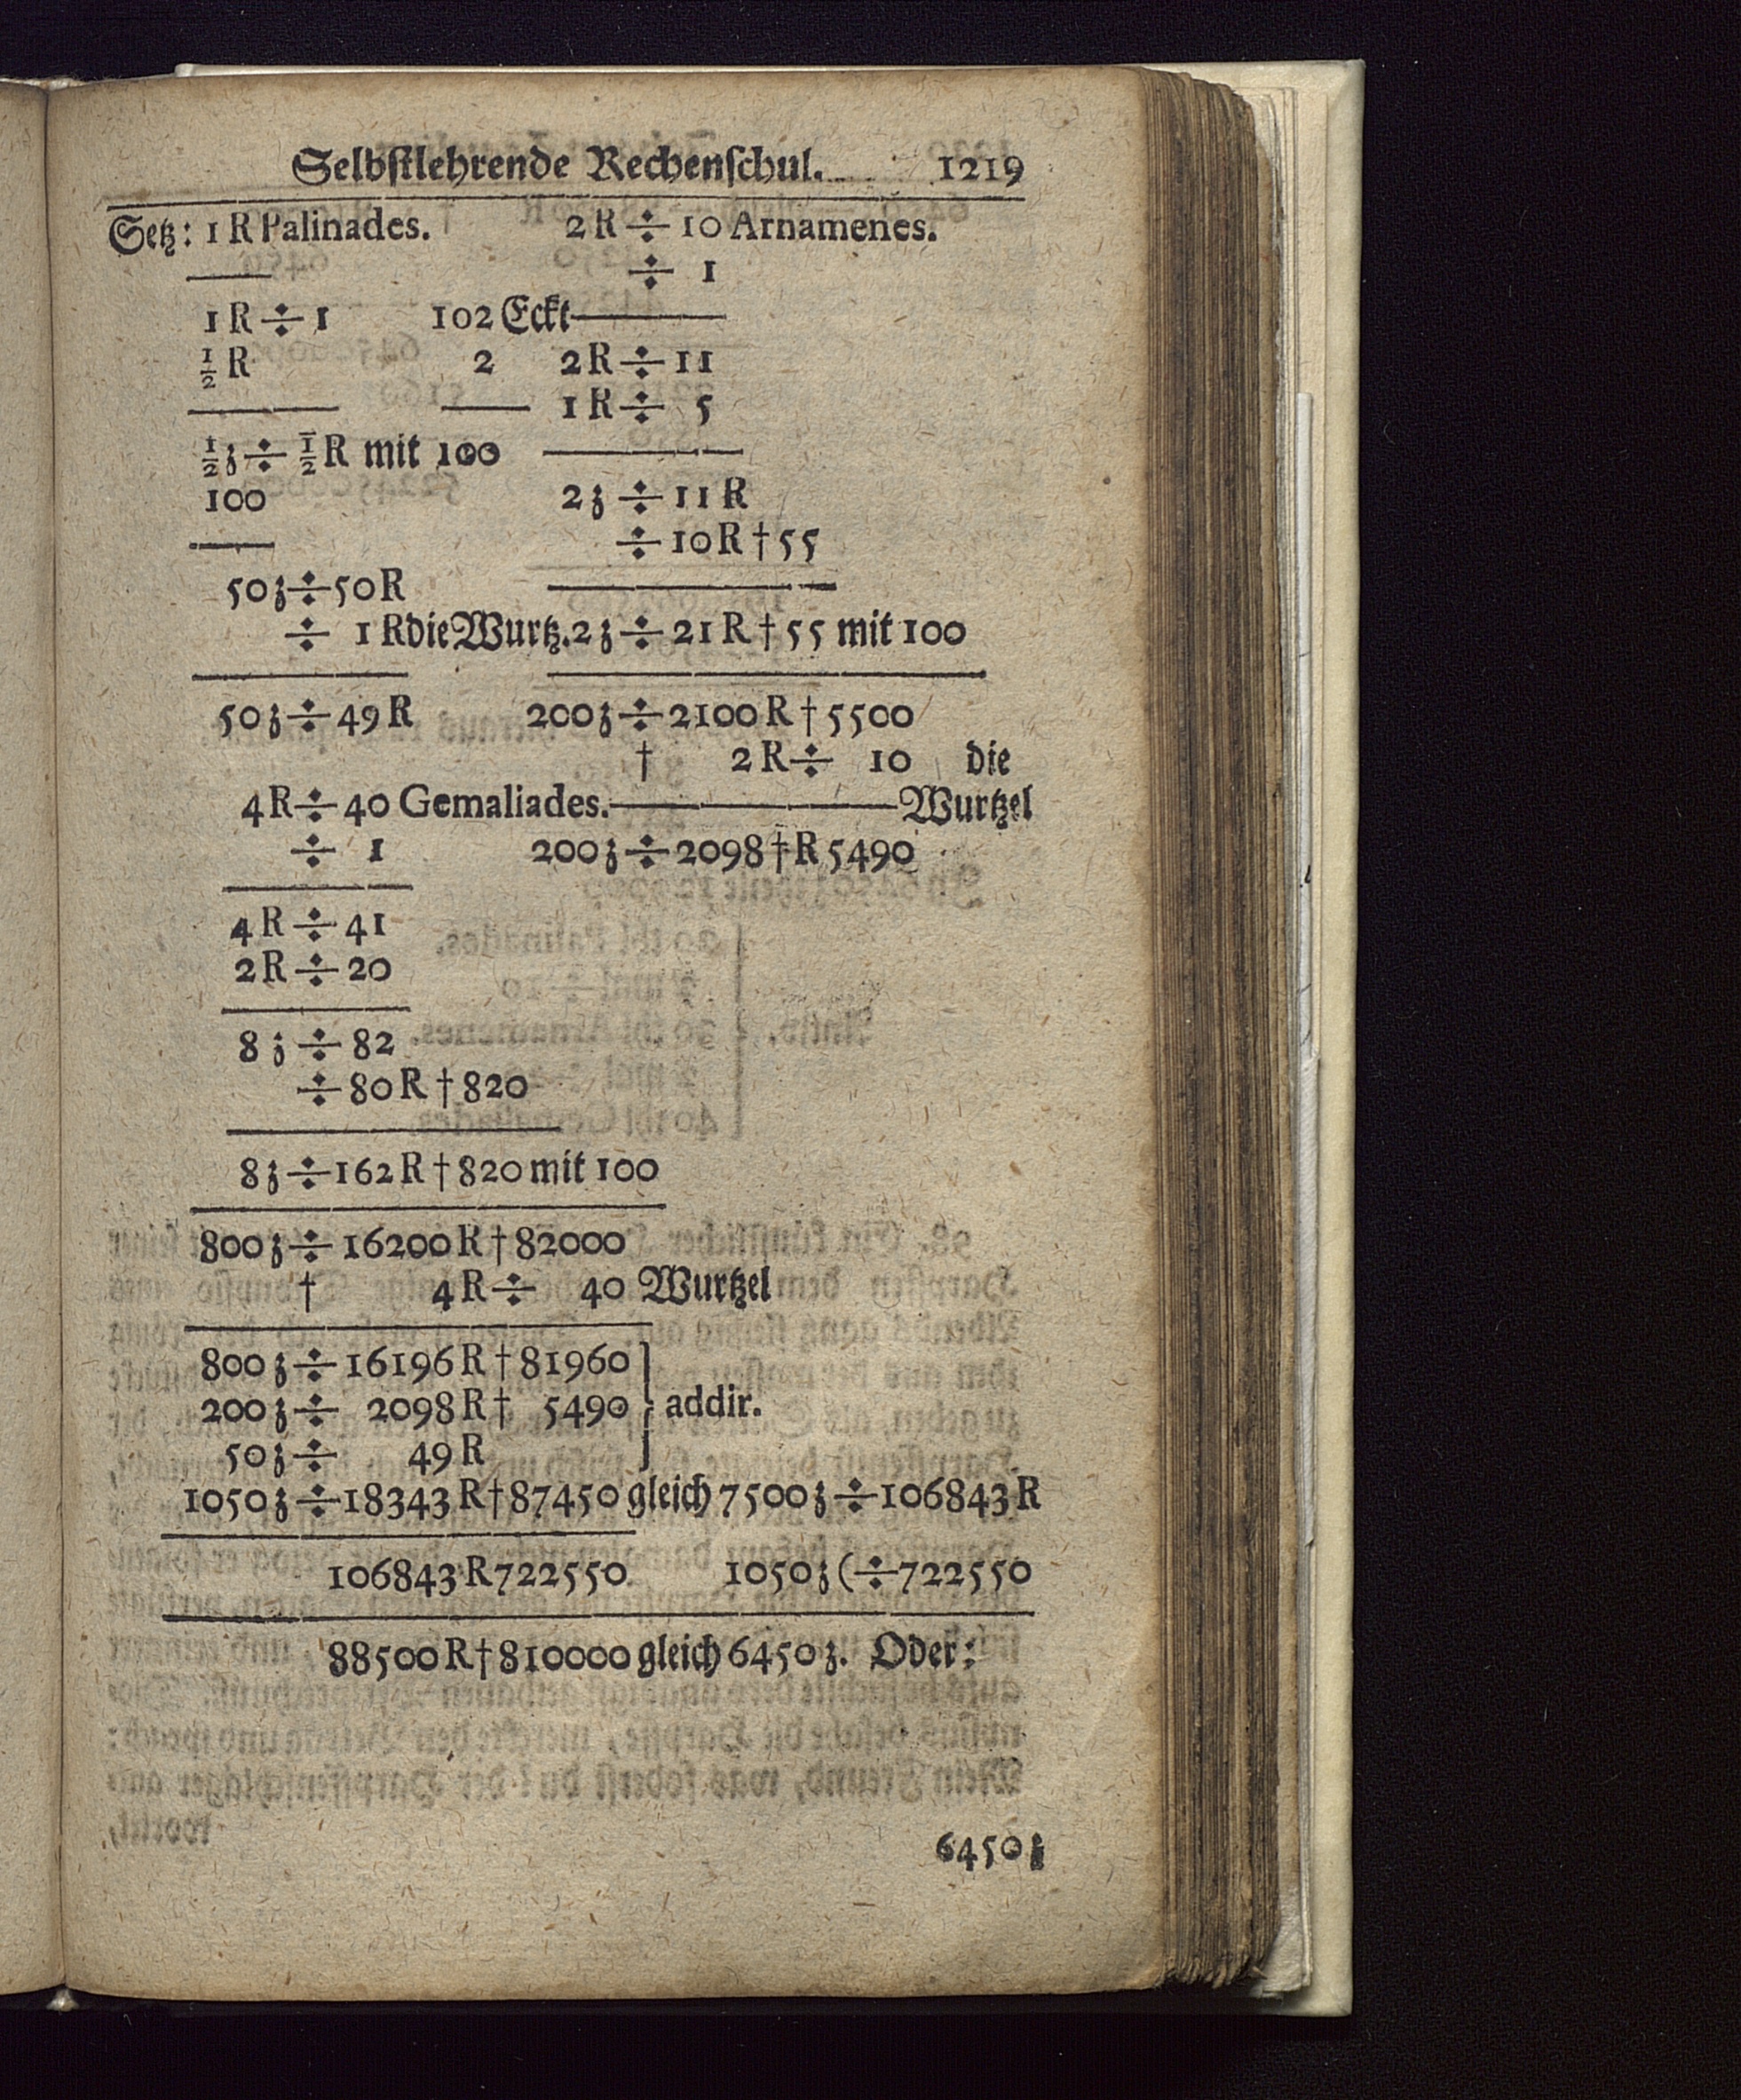 Selbſtlehrende Rechenſchul. 1219
Setz: 1 R Palinades. 2 R ÷ 10 Arnamenes.
÷ 1
1 R ÷ 1 102 Eckt
½ R 2 2 R ÷ 11
1 R ÷ 5
½ ʒ ÷ ½ R mit 100
100 2 ʒ ÷ 11 R
÷ 10 R † 55
50 ʒ ÷ 50 R
÷ 1 R die Wurtz. 2 ʒ ÷ 21 R † 55 mit 100
50 ʒ ÷ 49 R 200 ʒ ÷ 2100 R † 5500
† 2 R ÷ 10 die
4 R ÷ 40 Gemaliades. Wurtzel
÷ 1 200 ʒ ÷ 2098 † R 5490
4 R ÷ 41
2 R ÷ 20
8 ʒ ÷ 82
÷ 80 R † 820
8 ʒ ÷ 162 R † 820 mit 100
800 ʒ ÷ 16200 R † 82000
† 4 R ÷ 40 Wurtzel
800 ʒ ÷ 16196 R † 81960
200 ʒ ÷ 2098 R † 5490 } addir.
50 ʒ ÷ 49 R
1050 ʒ ÷ 18343 R † 87450 gleich 7500 ʒ ÷ 106843 R
106843 R 722550 1050 ʒ ( ÷ 722550
88500 R † 810000 gleich 6450 ʒ. Oder:
6450 ʒ